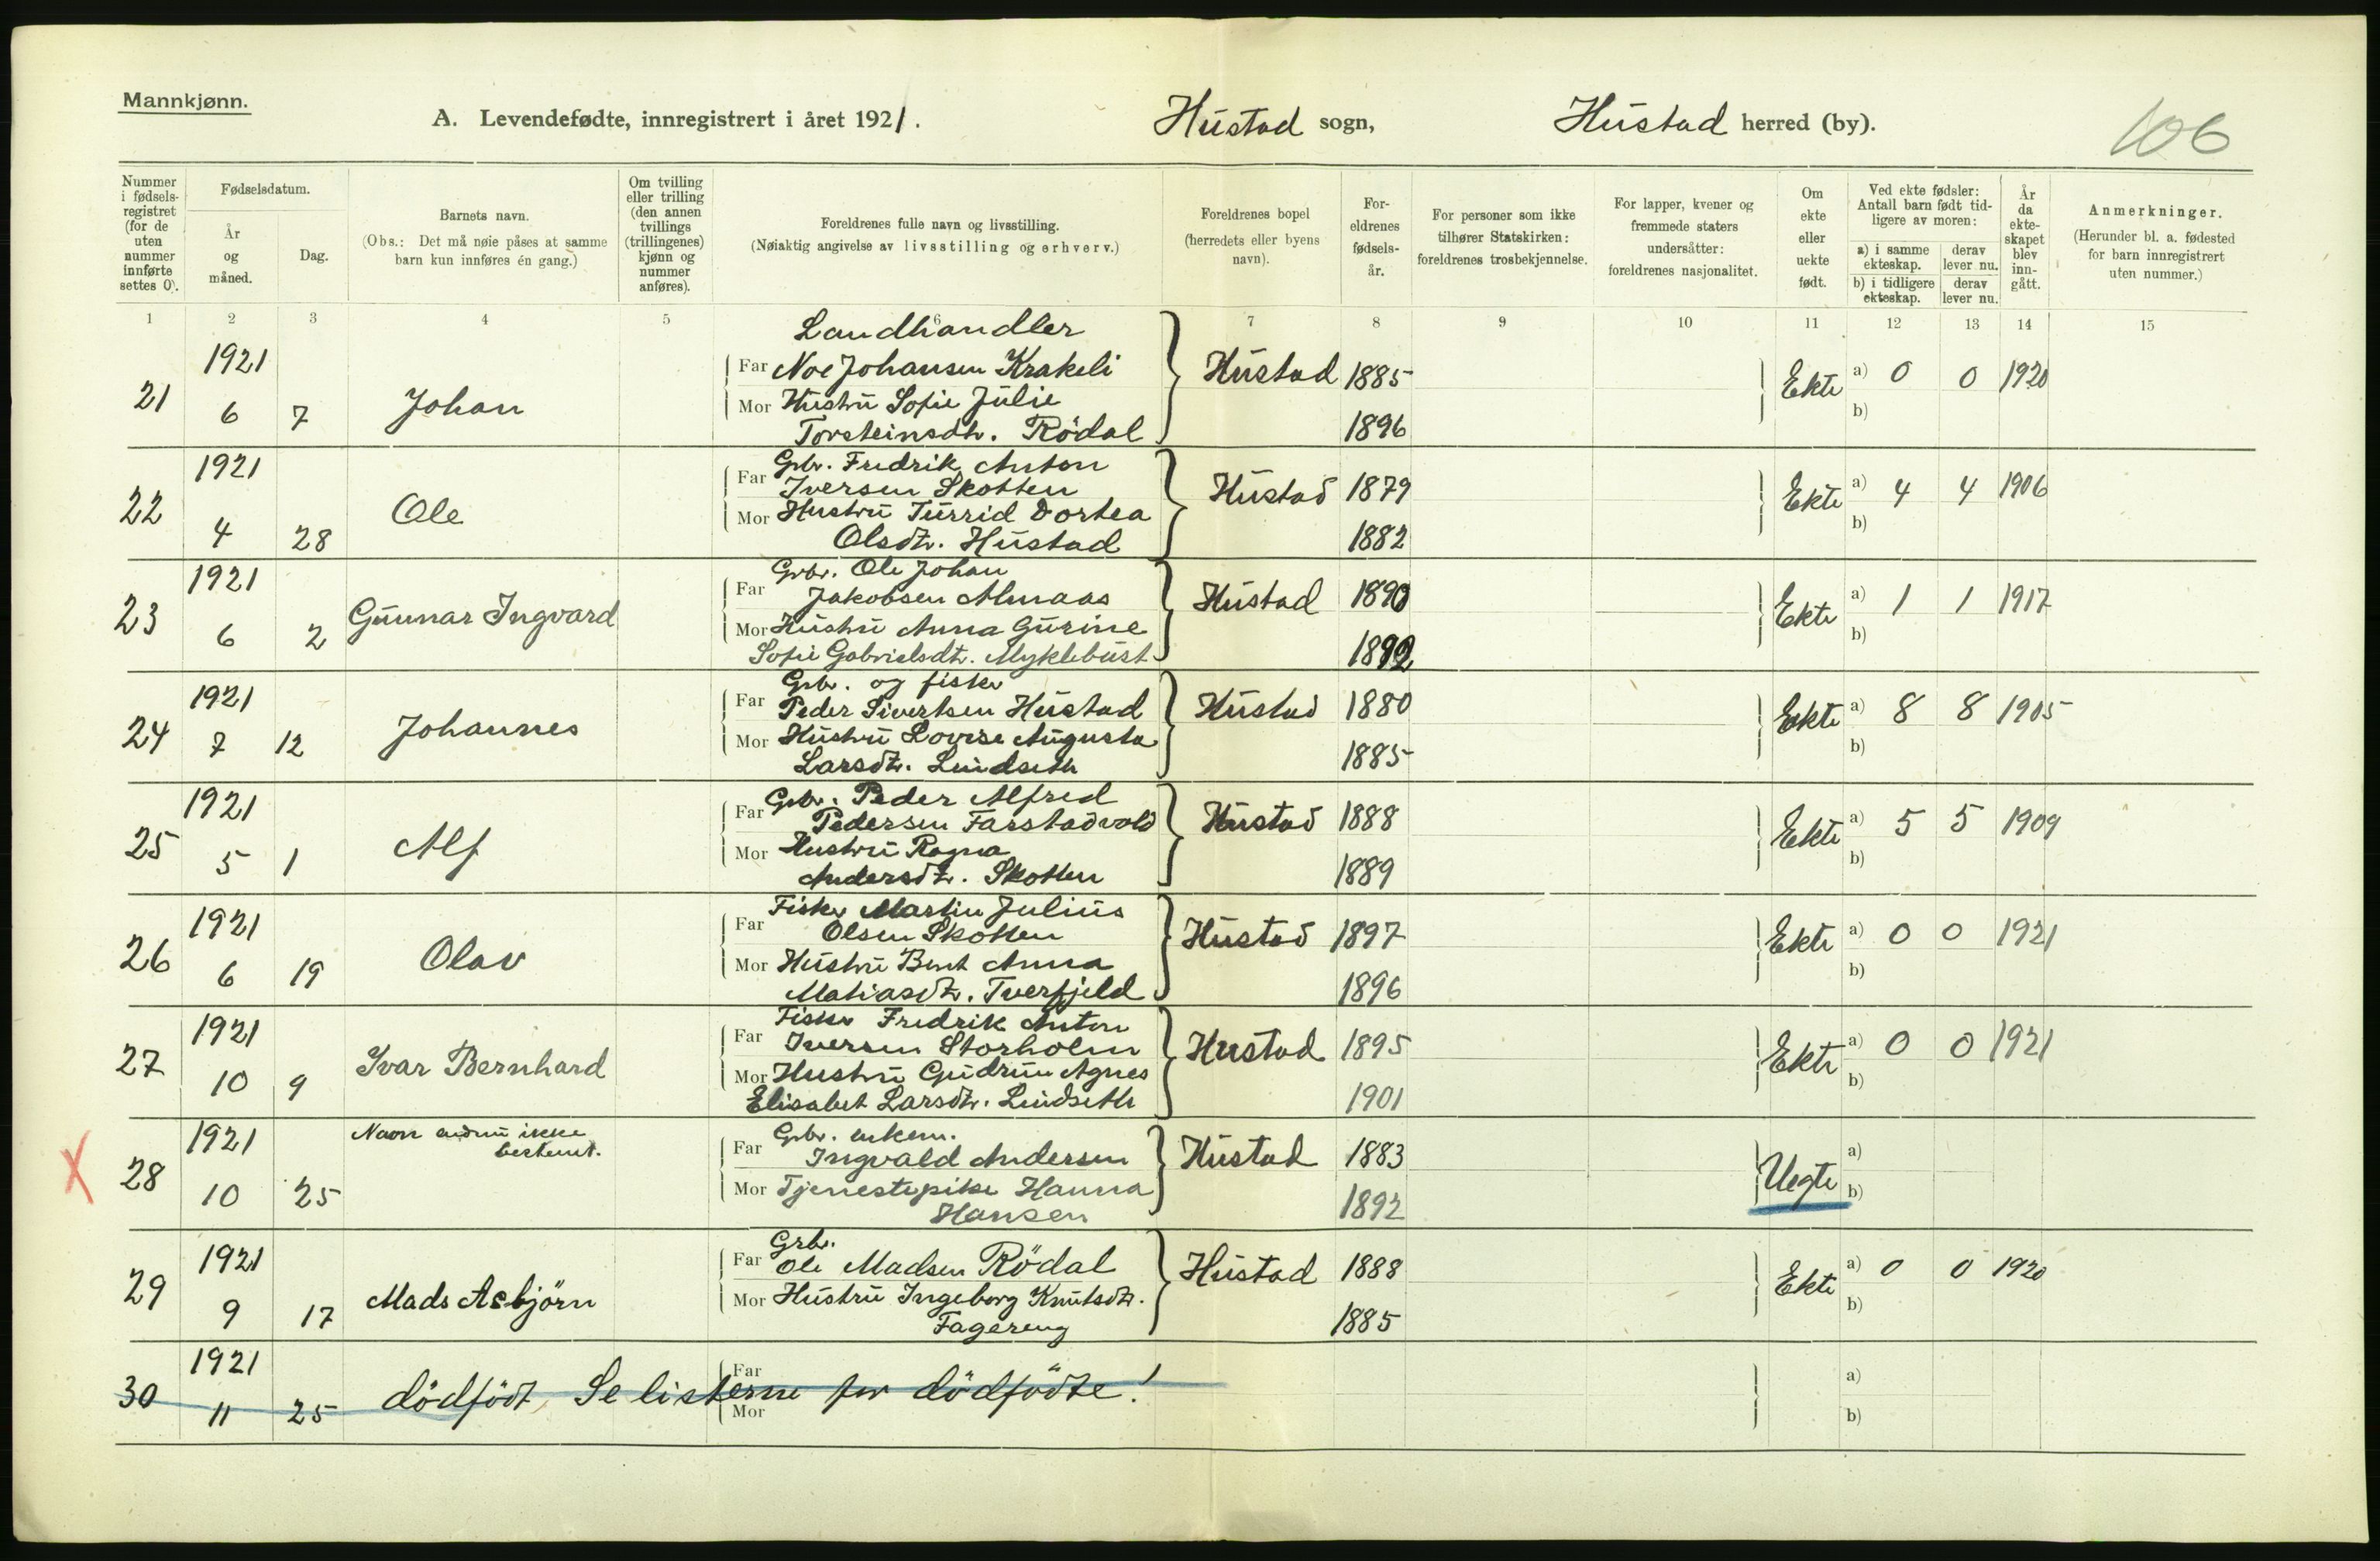 Mannkjønn.
A. Levendefødte, innregistrert i året 1921.
Hustad sogn,
Hustad herred (by).
106
Nummer i fødsels-registret (for de uten nummer innførte settes 0).
Fødselsdatum.
År og måned.
Dag.
Barnets navn.
(Obs.: Det må nøie påses at samme barn kun innføres én gang.)
Om tvilling eller trilling (den annen tvillings (trillingenes) kjønn og nummer anføres).
Foreldrenes fulle navn og livsstilling.
(Nøiaktig angivelse av livsstilling og erhverv.)
Foreldrenes bopel (herredets eller byens navn).
For-eldrenes fødsels-år.
For personer som ikke tilhører Statskirken: foreldrenes trosbekjennelse.
For lapper, kvener og fremmede staters undersåtter: foreldrenes nasjonalitet.
Om ekte eller uekte født.
Ved ekte fødsler: Antall barn født tid-ligere av moren:
a) i samme ekteskap.
derav lever nu.
b) i tidligere ekteskap.
derav lever nu.
År da ekte-skapet blev inn-gått.
Anmerkninger.
(Herunder bl. a. fødested for barn innregistrert uten nummer.)
1 2 3 4 5 6 7 8 9 10 11 12 13 14 15
Landhandler
21 1921 6 7 Johan
Far Noe Johansen Krakeli Hustad 1885 Ekte a) 0 0 1920
Mor Hustru Sofie Julie b)
Torsteinsdtr. Rödal 1896
22 1921 4 28 Ole
Gbr. Fredrik Anton
Far Iversen Skotten Hustad 1879 Ekte a) 4 4 1906
Mor Hustru Turrid Dortea b)
Olsdtr. Hustad 1882
23 1921 6 2 Gunnar Ingvard
Grbr. Ole Johan
Far Jakobsen Almaas Hustad 1890 Ekte a) 1 1 1917
Mor Hustru Anna Gurine b)
Sofie Gabrielsdtr. Myklebust 1892
24 1921 7 12 Johannes
Grbr. og fisker
Far Peder Sivertsen Hustad Hustad 1880 Ekte a) 8 8 1905
Mor Hustru Lovise Augusta b)
Larsdtr. Lindseth 1885
25 1921 5 1 Alf
Gbr. Peder Alfred
Far Pedersen Farstadvold Hustad 1888 Ekte a) 5 5 1909
Mor Hustru Ragna b)
Andersdtr. Skotten 1889
26 1921 6 19 Olav
Fisker Martin Julius
Far Olsen Skotten Hustad 1897 Ekte a) 0 0 1921
Mor Hustru Berit Anna b)
Matiasdtr. Tverfjeld 1896
27 1921 10 9 Ivar Bernhard
Fisker Fredrik Anton
Far Iversen Storholm Hustad 1895 Ekte a) 0 0 1921
Mor Hustru Gudrun Agnes b)
Elisabet Larsdtr. Lindseth 1901
X 28 1921 10 25 Navn endnu ikke
bestemt.
Gbr. enkem.
Far Ingvald Andersen Hustad 1883 Uegte a)
Mor Tjenestepike Hanna b)
Hansen 1892
29 1921 9 17 Mads Asbjörn
Grbr.
Far Ole Madsen Rödal Hustad 1888 Ekte a) 0 0 1920
Mor Hustru Ingeborg Knutsdtr. b)
Fagereng 1885
30 1921 11 25 dödfödt, Se listerne for dödfödte!
Far a)
Mor b)